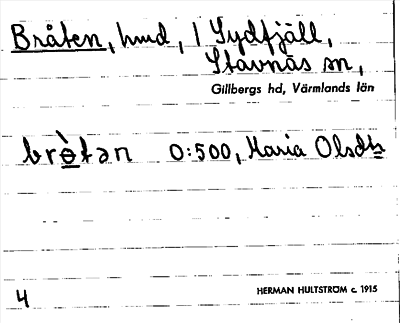 Bråten, hmd, 1 Sydfjäll,
Stavnäs sn,
Gillbergs hd, Värmlands län
brò̱tən 0:500, Maria Olsdtr
4
HERMAN HULTSTRÖM c. 1915